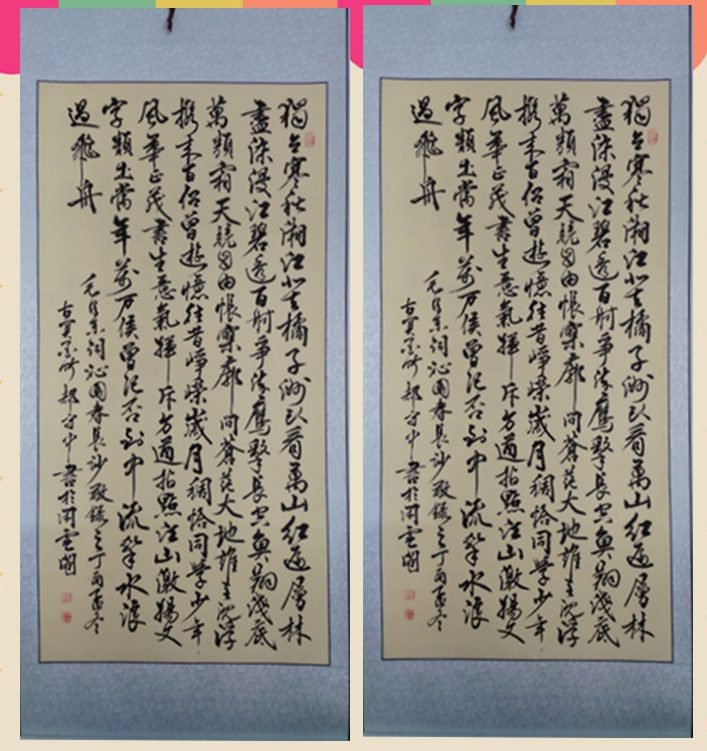 獨立寒秋湘江北去橘子洲頭看萬山紅遍層林
盡染漫江碧透百舸爭流鷹擊長空魚翔淺底
萬類霜天競自由悵寥廓問蒼茫大地誰主沉浮
攜來百侶曾遊憶往昔崢嶸歲月稠恰同學少年
風華正茂書生意氣揮斥方遒指點江山激揚文
字糞土當年萬戶侯曾記否到中流擊水浪
遏飛舟
毛澤東詞沁園春長沙敬錄之丁酉孟冬
守中書於雲閣
獨立寒秋湘江北去橘子洲頭看萬山紅遍層林
盡染漫江碧透百舸爭流鷹擊長空魚翔淺底
萬類霜天競自由悵寥廓問蒼茫大地誰主沉浮
攜來百侶曾遊憶往昔崢嶸歲月稠恰同學少年
風華正茂書生意氣揮斥方遒指點江山激揚文
字糞土當年萬戶侯曾記否到中流擊水浪
遏飛舟
毛澤東詞沁園春長沙敬錄之丁酉孟冬
守中書於雲閣